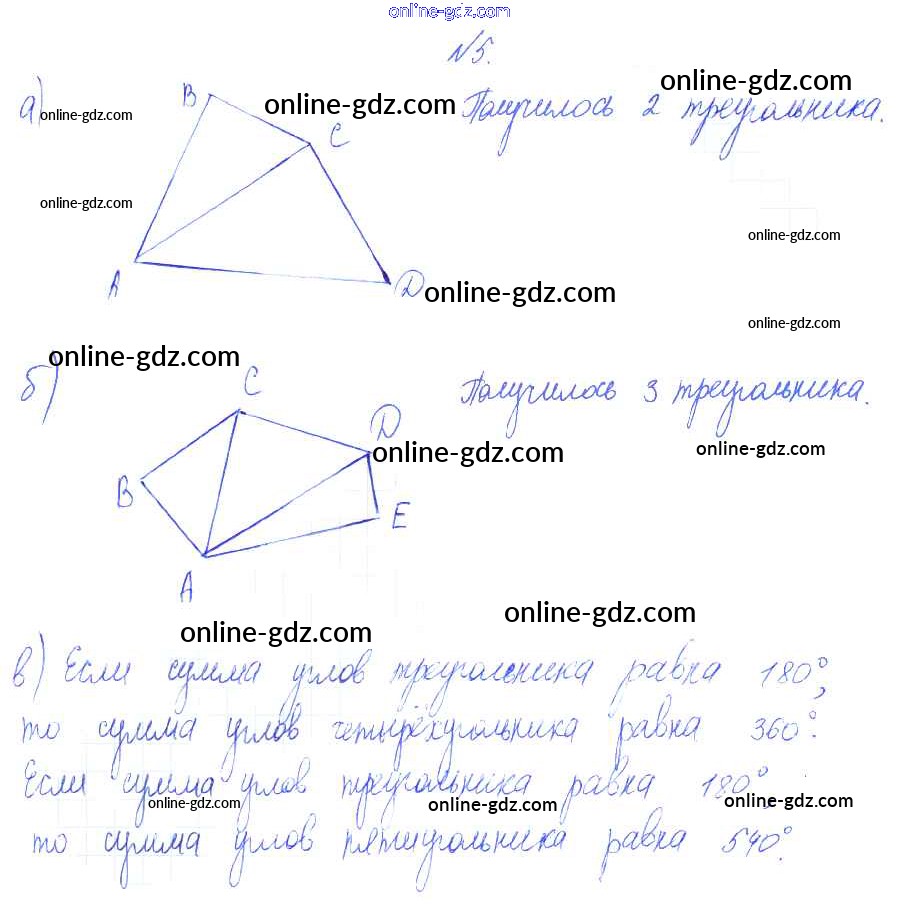 online-gdz.com
№5.
а) online-gdz.com B online-gdz.com Получилось 2 треугольника. online-gdz.com
C
online-gdz.com
online-gdz.com
A D online-gdz.com
online-gdz.com
online-gdz.com
б) C Получилось 3 треугольника.
D online-gdz.com online-gdz.com
B
E
A
online-gdz.com
online-gdz.com
в) Если сумма углов треугольника равна 180°,
то сумма углов четырёхугольника равна 360°.
Если сумма углов треугольника равна 180°,
online-gdz.com online-gdz.com online-gdz.com
то сумма углов пятиугольника равна 540°.